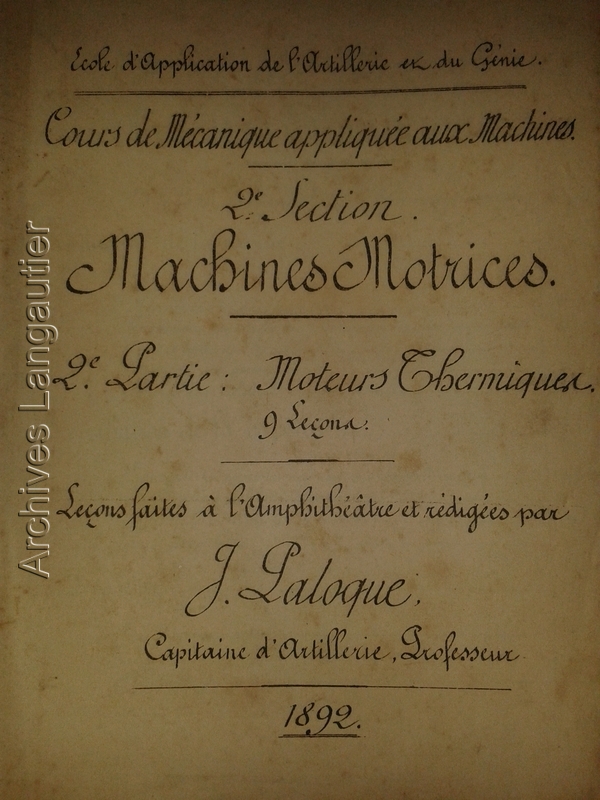 Ecole d'Application de l'Artillerie et du Génie.
Cours de Mécanique appliquée aux Machines.
2e Section.
Machines Motrices.
2e Partie : Moteurs Thermiques.
9 Leçons.
Leçons faites à l'Amphithéâtre et rédigées par
J. Paloque,
Capitaine d'Artillerie, Professeur
1892.
Archives Langautier